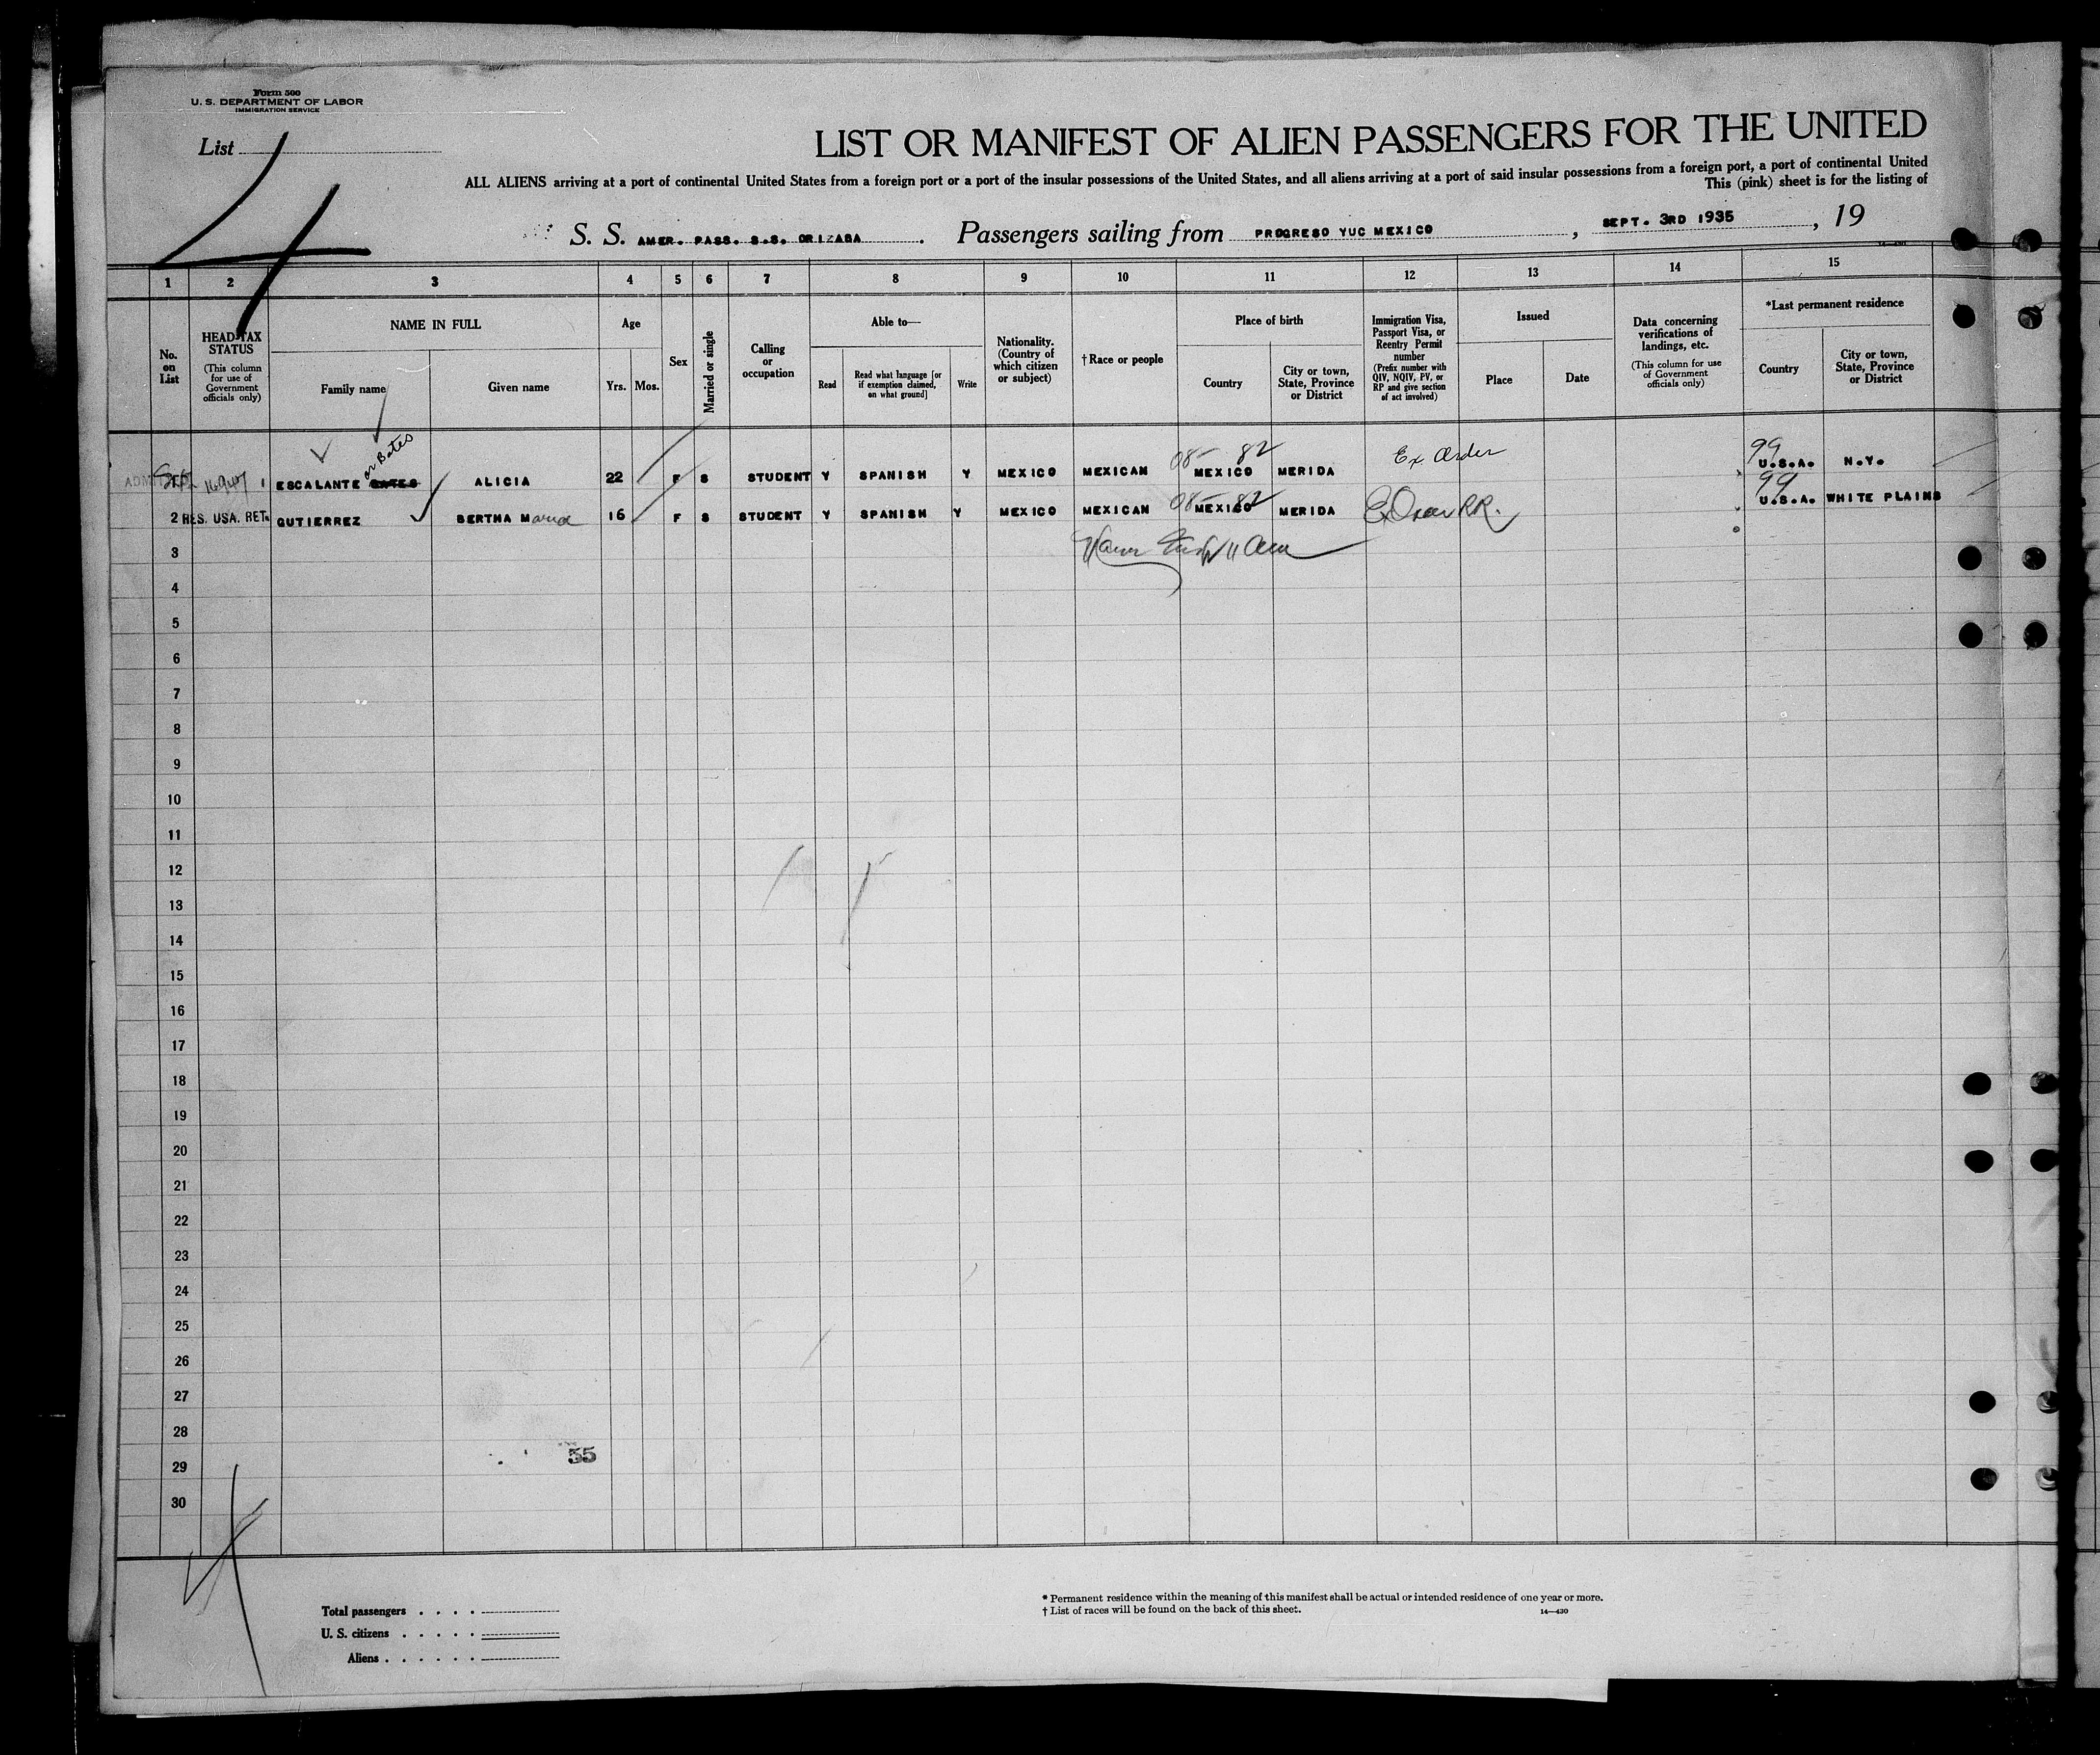 Form 500
U. S. DEPARTMENT OF LABOR
IMMIGRATION SERVICE
List 4
LIST OR MANIFEST OF ALIEN PASSENGERS FOR THE UNITED
ALL ALIENS arriving at a port of continental United States from a foreign port or a port of the insular possessions of the United States, and all aliens arriving at a port of said insular possessions from a foreign port, a port of continental United
This (pink) sheet is for the listing of
S. S. AMER. PASS. S.S. ORIZABA. Passengers sailing from PROGRESO YUC MEXICO, SEPT. 3RD 1935, 19
1 2 3 4 5 6 7 8 9 10 11 12 13 14 15
No. on List
HEAD-TAX STATUS (This column for use of Government officials only)
NAME IN FULL
Family name
Given name
Age
Yrs. Mos.
Sex
Married or single
Calling or occupation
Able to—
Read
Read what language [or if exemption claimed, on what ground]
Write
Nationality. (Country of which citizen or subject)
†Race or people
Place of birth
Country
City or town, State, Province or District
Immigration Visa, Passport Visa, or Reentry Permit number (Prefix number with QIV, NQIV, PV, or RP and give section of act involved)
Issued
Place
Date
Data concerning verifications of landings, etc. (This column for use of Government officials only)
*Last permanent residence
Country
City or town, State, Province or District
or Bates
08- 82 Ex. Order 99
1 ESCALANTE BATES ALICIA 22 F S STUDENT Y SPANISH Y MEXICO MEXICAN MEXICO MERIDA U.S.A. N.Y.
08- 82 99
2 RES. USA. RET. GUTIERREZ BERTHA Maria 16 F S STUDENT Y SPANISH Y MEXICO MEXICAN MEXICO MERIDA U.S.A. WHITE PLAINS
3
4
5
6
7
8
9
10
11
12
13
14
15
16
17
18
19
20
21
22
23
24
25
26
27
28
55
29
30
Total passengers . . . .
U. S. citizens . . . . .
Aliens . . . . . .
* Permanent residence within the meaning of this manifest shall be actual or intended residence of one year or more.
† List of races will be found on the back of this sheet. 14—430